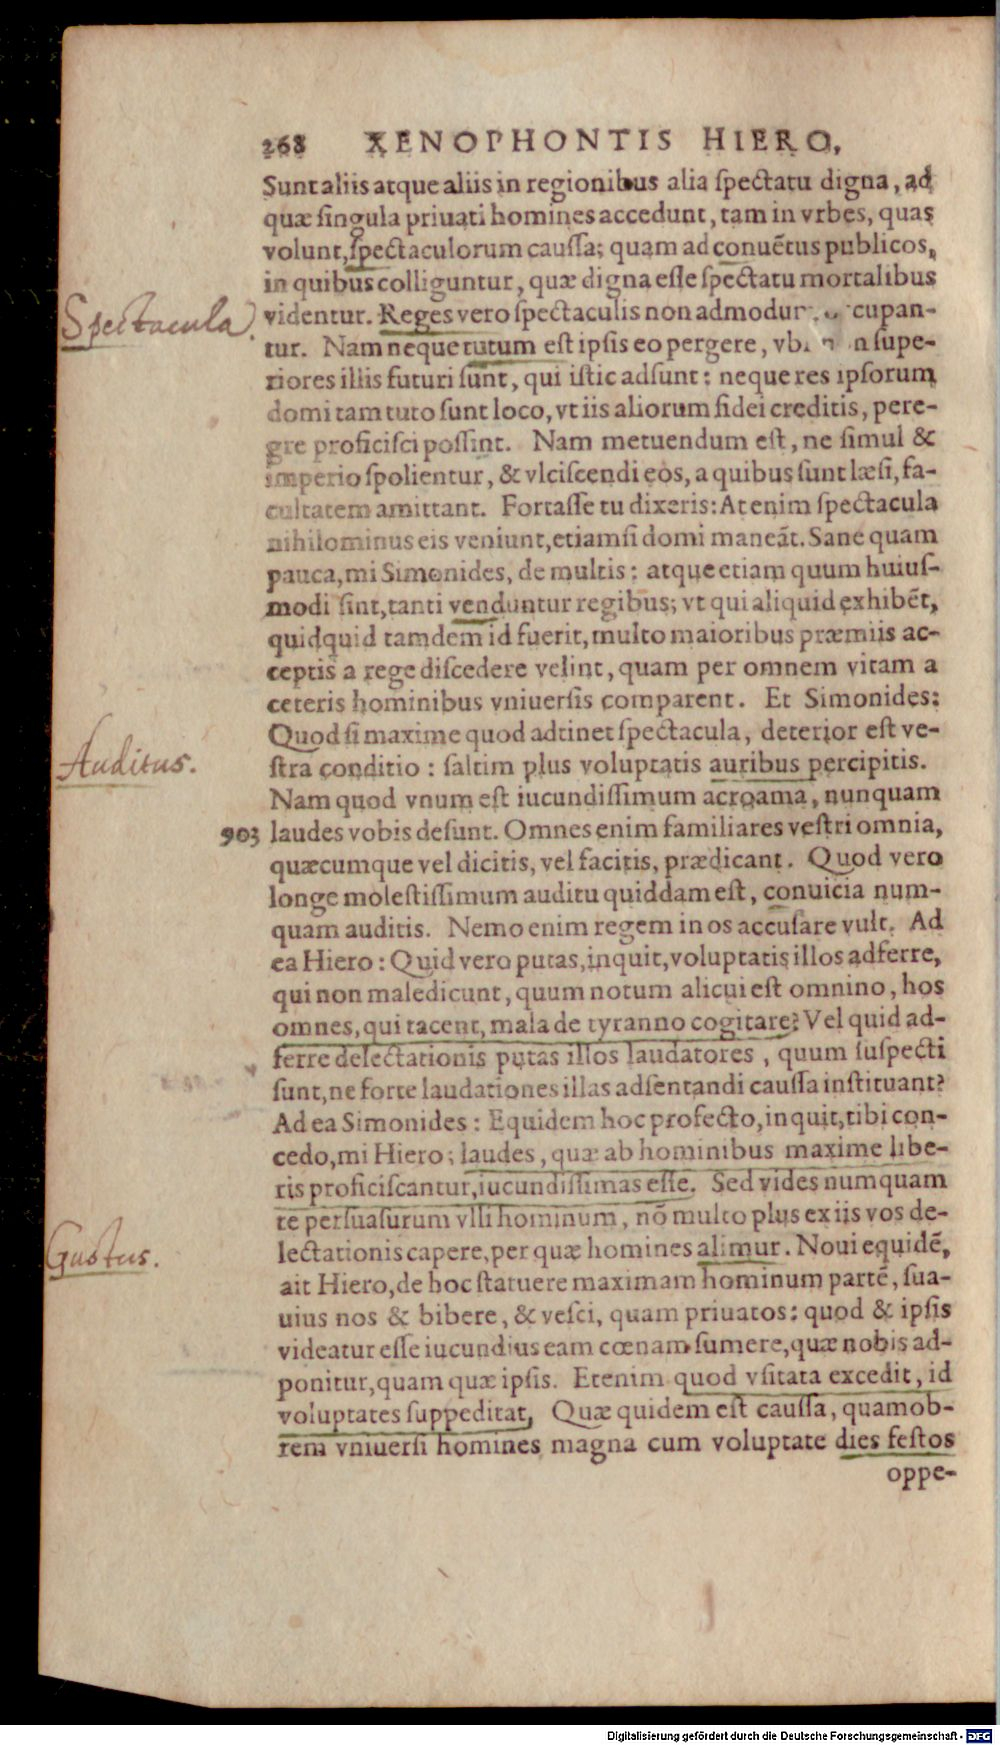 268 XENOPHONTIS HIERO,
Sunt aliis atque aliis in regionibus alia spectatu digna, ad
quæ singula priuati homines accedunt, tam in vrbes, quas
volunt, spectaculorum caussa; quam ad conuẽtus publicos,
in quibus colliguntur, quæ digna esse spectatu mortalibus
Spectacula.
videntur. Reges vero spectaculis non admodum cupan-
tur. Nam neque tutum est ipsis eo pergere, vbi n supe-
riores illis futuri sunt, qui istic adsunt: neque res ipsorum
domi tam tuto sunt loco, vt iis aliorum fidei creditis, pere-
gre proficisci possint. Nam metuendum est, ne simul &
imperio spolientur, & vlciscendi eos, a quibus sunt læsi, fa-
cultatem amittant. Fortasse tu dixeris: At enim spectacula
nihilominus eis veniunt, etiamsi domi maneãt. Sane quam
pauca, mi Simonides, de multis: atque etiam quum huius-
modi sint, tanti venduntur regibus; vt qui aliquid exhibẽt,
quidquid tamdem id fuerit, multo maioribus præmiis ac-
ceptis a rege discedere velint, quam per omnem vitam a
ceteris hominibus vniuersis comparent. Et Simonides:
Quod si maxime quod adtinet spectacula, deterior est ve-
Auditus.
stra conditio: saltim plus voluptatis auribus percipitis.
Nam quod vnum est iucundissimum acroama, nunquam
903 laudes vobis desunt. Omnes enim familiares vestri omnia,
quæcumque vel dicitis, vel facitis, prædicant. Quod vero
longe molestissimum auditu quiddam est, conuicia num-
quam auditis. Nemo enim regem in os accusare vult. Ad
ea Hiero: Quid vero putas, inquit, voluptatis illos adferre,
qui non maledicunt, quum notum alicui est omnino, hos
omnes, qui tacent, mala de tyranno cogitare? Vel quid ad-
ferre delectationis putas illos laudatores, quum suspecti
sunt, ne forte laudationes illas adsentandi caussa instituant?
Ad ea Simonides: Equidem hoc profecto, inquit, tibi con-
cedo, mi Hiero; laudes, quæ ab hominibus maxime libe-
ris proficiscantur, iucundissimas esse. Sed vides numquam
te persuasurum vlli hominum, nõ multo plus ex iis vos de-
Gustus.
lectationis capere, per quæ homines alimur. Noui equidẽ,
ait Hiero, de hoc statuere maximam hominum partẽ, sua-
uius nos & bibere, & vesci, quam priuatos: quod & ipsis
videatur esse iucundius eam cœnam sumere, quæ nobis ad-
ponitur, quam quæ ipsis. Etenim quod vsitata excedit, id
voluptates suppeditat. Quæ quidem est caussa, quamob-
rem vniuersi homines magna cum voluptate dies festos
oppe-
Digitalisierung gefördert durch die Deutsche Forschungsgemeinschaft - DFG